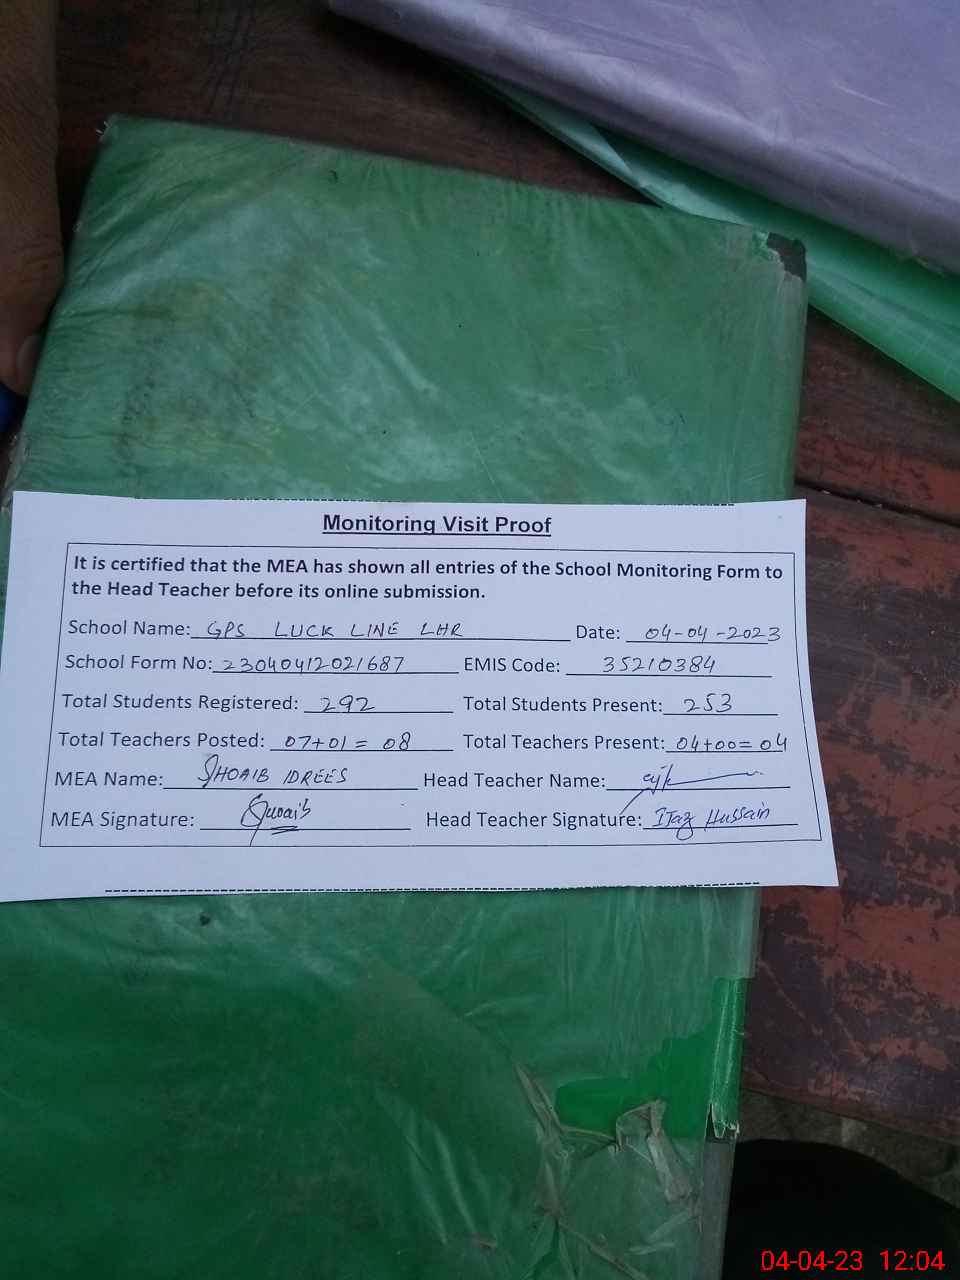 Monitoring Visit Proof
It is certified that the MEA has shown all entries of the School Monitoring Form to
the Head Teacher before its online submission.
School Name: GPS LUCK LINE LHR Date: 04-04-2023
School Form No: 23040412021687 EMIS Code: 35210384
Total Students Registered: 292 Total Students Present: 253
Total Teachers Posted: 07+01= 08 Total Teachers Present: 04+00= 04
MEA Name: SHOAIB IDREES Head Teacher Name:
MEA Signature: Shoaib Head Teacher Signature: IJaz Hussain
04-04-23 12:04